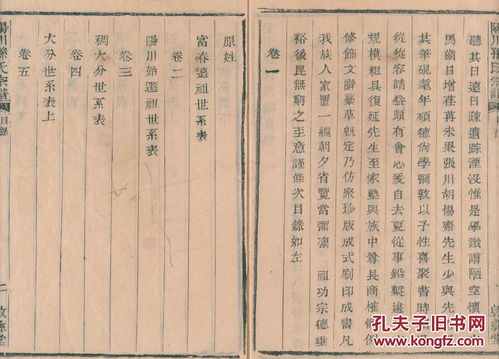 聽其日遠日疎遺踪湮沒惟是學識謭陋
馬齒日增荏苒未果張川胡惕齋先生少與先
其筆硯耄年碩德尚學彌敦以予性喜聚書時
從從容請益頗有會心爰自去夏從事鉛槧
規模粗具復延先生至家塾與族中尊長商榷條
修飾文辭纂草甫定乃仿聚珍版成式刷印成書凡
我族人家置一編朝夕省覽當凛凛 祖功宗德垂
裕後昆無窮之至意謹條次目錄如左
卷一
原姓
富春遠祖世系表
卷二
陽川始遷祖世系表
卷三
稠大分世系表
卷四
大分世系表上
卷五
陽川孫氏宗譜 目錄 二
孔夫子旧书网
www.kongfz.com